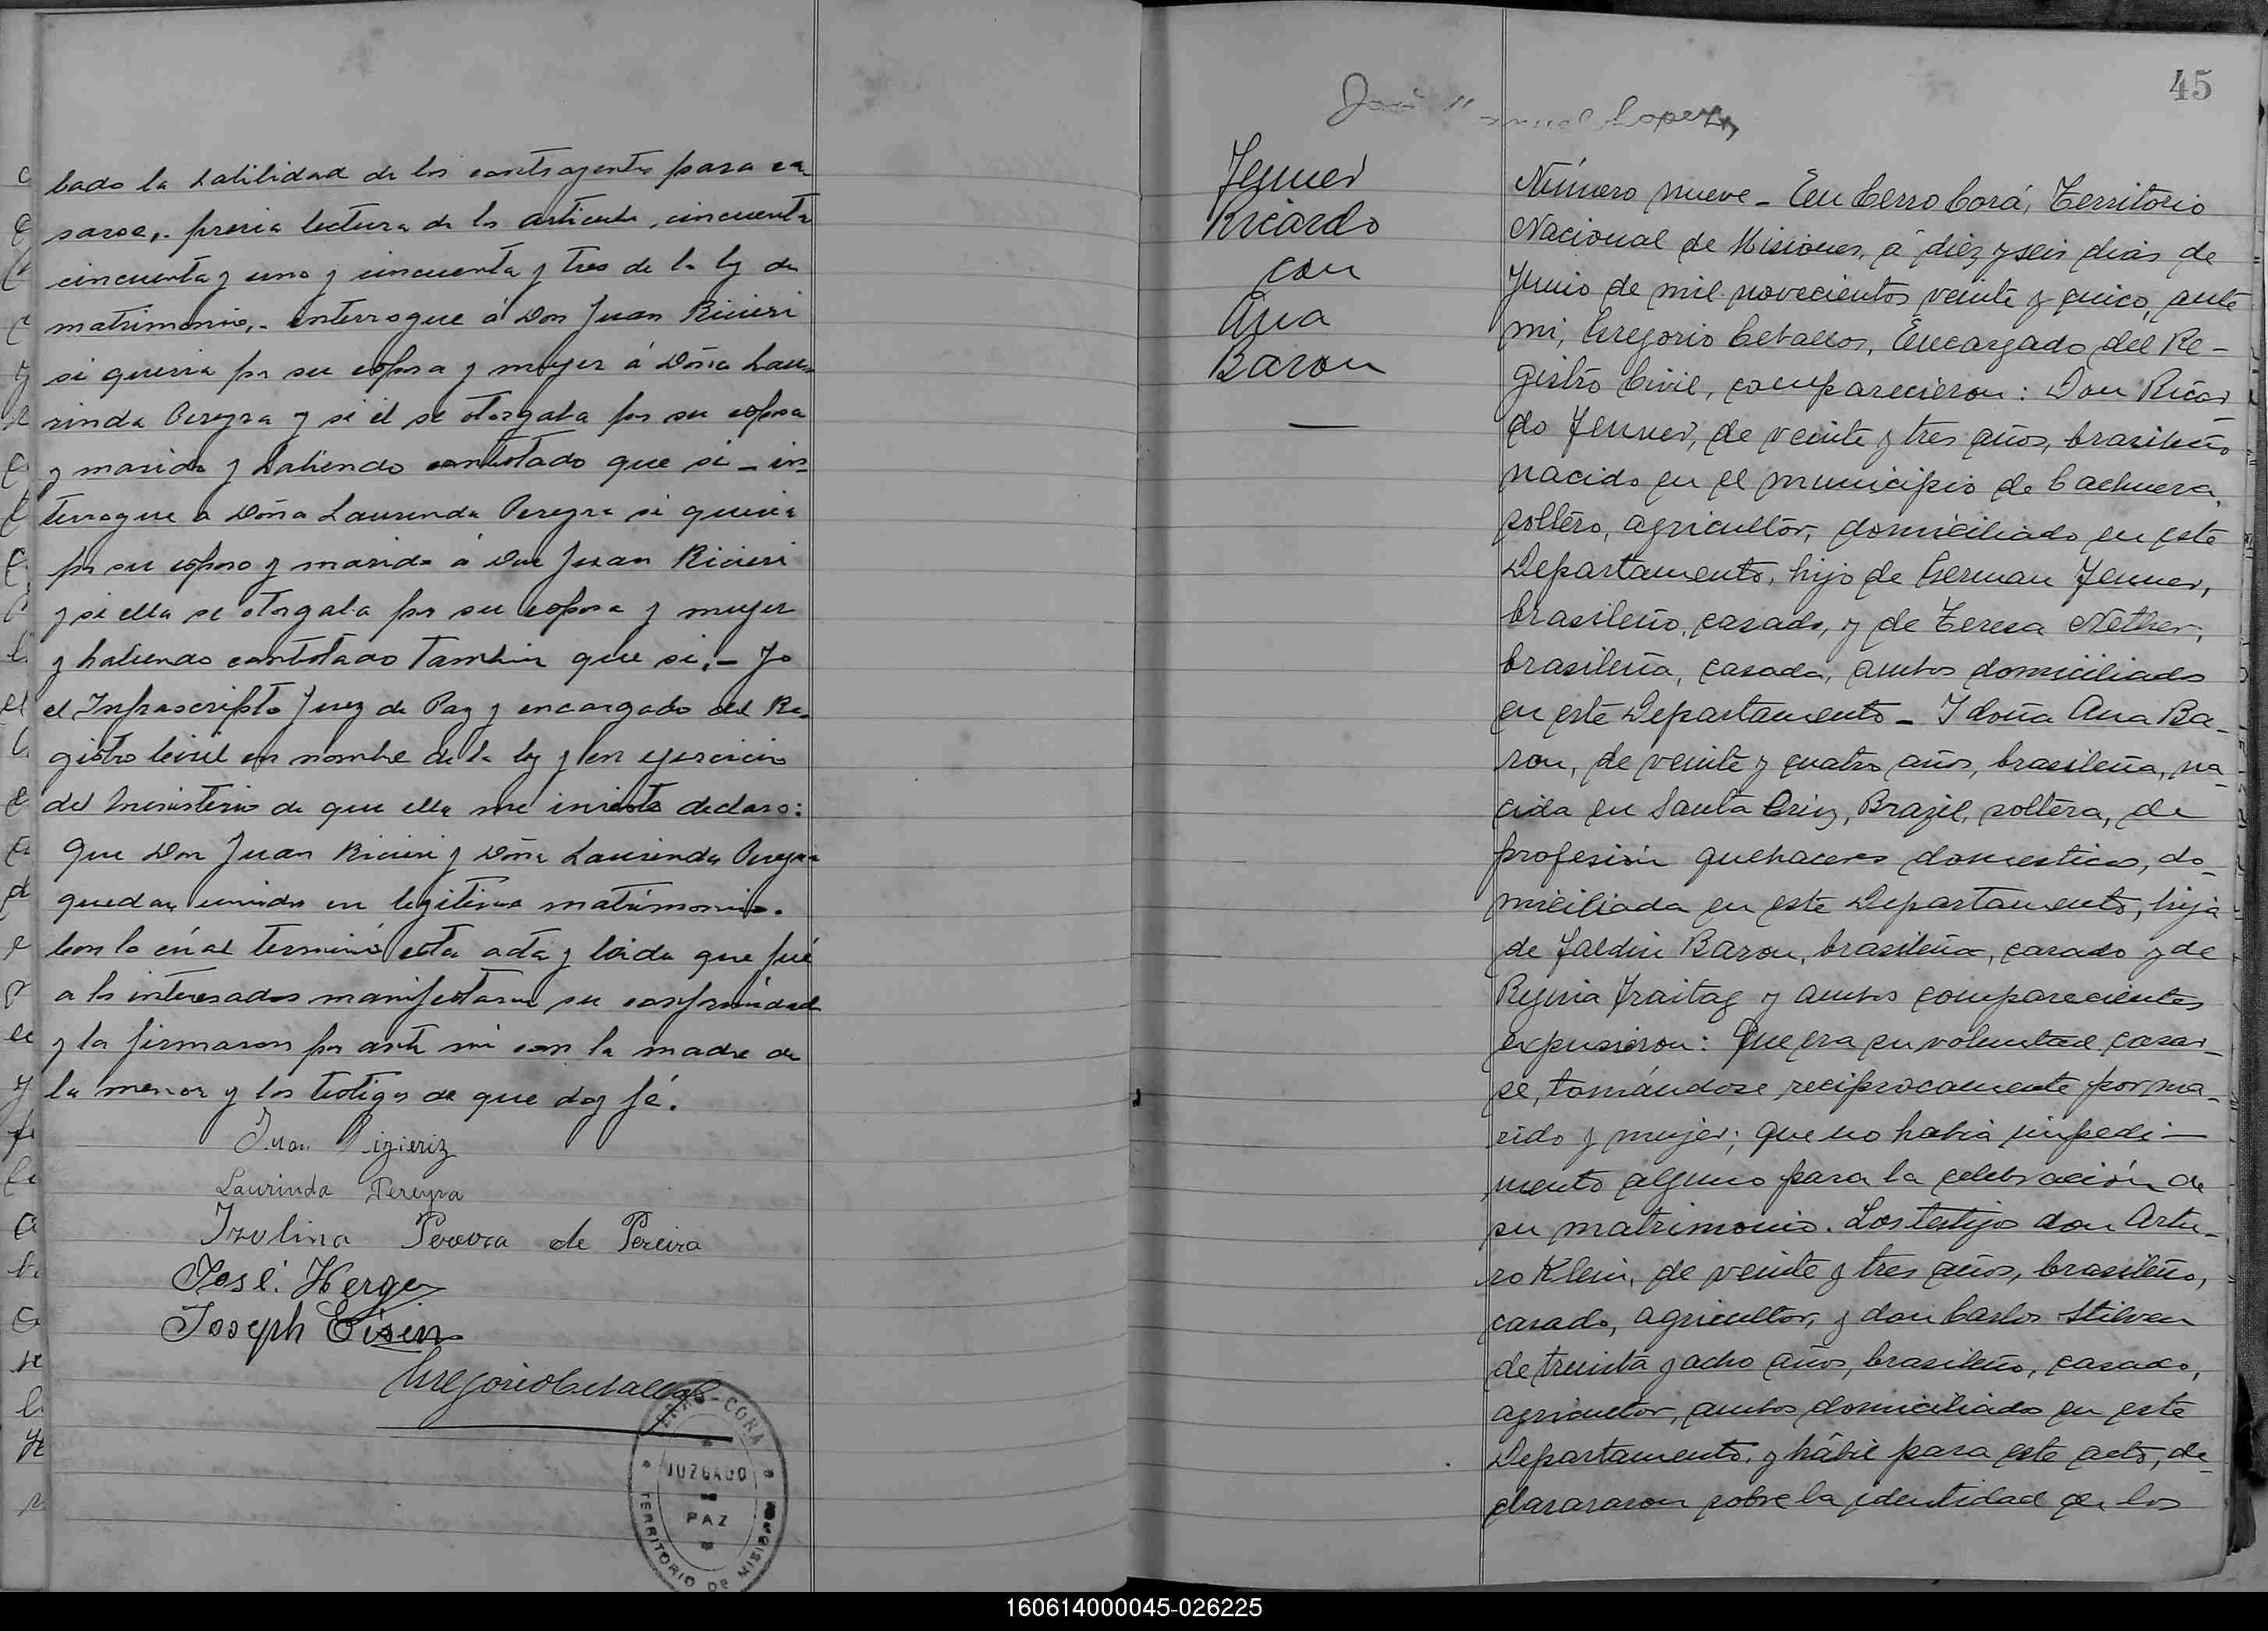 bado la habilidad de los contrayentes para ca
sarse,. previa lectura de los articulos, cincuenta
cincuenta y uno y cincuenta y tres de la ley de
matrimonio,. interrogue á Don Juan Rivieri
si queria por su esposa y mujer á Doña Lau-
rinda Pereyra y si él se otorgaba por su esposo
y marido y habiendo contestado que si _ in-
terrogue a Doña Laurinda Pereyra si queria
por su esposo y marido á Don Juan Rivieri
y si ella se otorgaba por su esposa y mujer
y habiendo contestado tambien que si,. _ Yo
el Infrascripto Juez de Paz y encargado del Re-
gistro Civil en nombre de la ley y en ejercicio
del Ministerio de que ella me inviste declaro:
Que Don Juan Rivieri y Doña Laurinda Pereyra
quedan unidos en legitimo matrimonio.
Con lo cúal terminó esta acta y leida que fué
a los interesados manifestaron su conformidad
y la firmaron por ante mi con la madre de
la menor y los testigos de que doy fé.
Juan Rizieriz
Laurinda Pereyra
Izolina de Pereira
José Herge
Joseph Eisen
Gregorio Ceballos
CERRO-CORÁ
JUZGADO
PAZ
TERRITORIO DE MISIONES
45
José Lopez
Jenner
Ricardo
con
Ana
Baron
Número nueve _ En Cerro Corá, Territorio
Nacional de Misiones, á diez y seis dias de
Junio de mil novecientos veinte y cinco, ante
mi, Gregorio Ceballos, Encargado del Re-
gistro Civil, comparecieron: Don Ricar-
do Jenner, de veinte y tres años, brasileño
nacido en el municipio de Cachuera,
soltero, agricultor, domiciliado en este
Departamento, hijo de German Jenner,
brasileño, casado, y de Teresa Nether,
brasileña, casada, ambos domiciliado
en este Departamento _ Y doña Ana Ba-
ron, de veinte y cuatro años, brasileña, na-
cida en Santa Cruz, Brazil, soltera, de
profesión quehaceres domesticos, do-
miciliada en este Departamento, hija
de Jaldin Baron, brasileña, casado y de
Regina Fraitag y ambos comparecientes
expusieron: Que era su voluntad casar-
se, tomándose reciprocamente por ma-
rido y mujer; que no habia impedi-
mento alguno para la celebración de
su matrimonio. Los testigos don Artu-
ro Klein, de veinte y tres años, brasileño,
casado, agricultor, y don Carlos Stilven
de treinta y acho años, brasileño, casado,
agricultor, ambos domiciliado en este
Departamento, y hábil para este acto, de-
clararason sobre la identidad de los
160614000045-026225